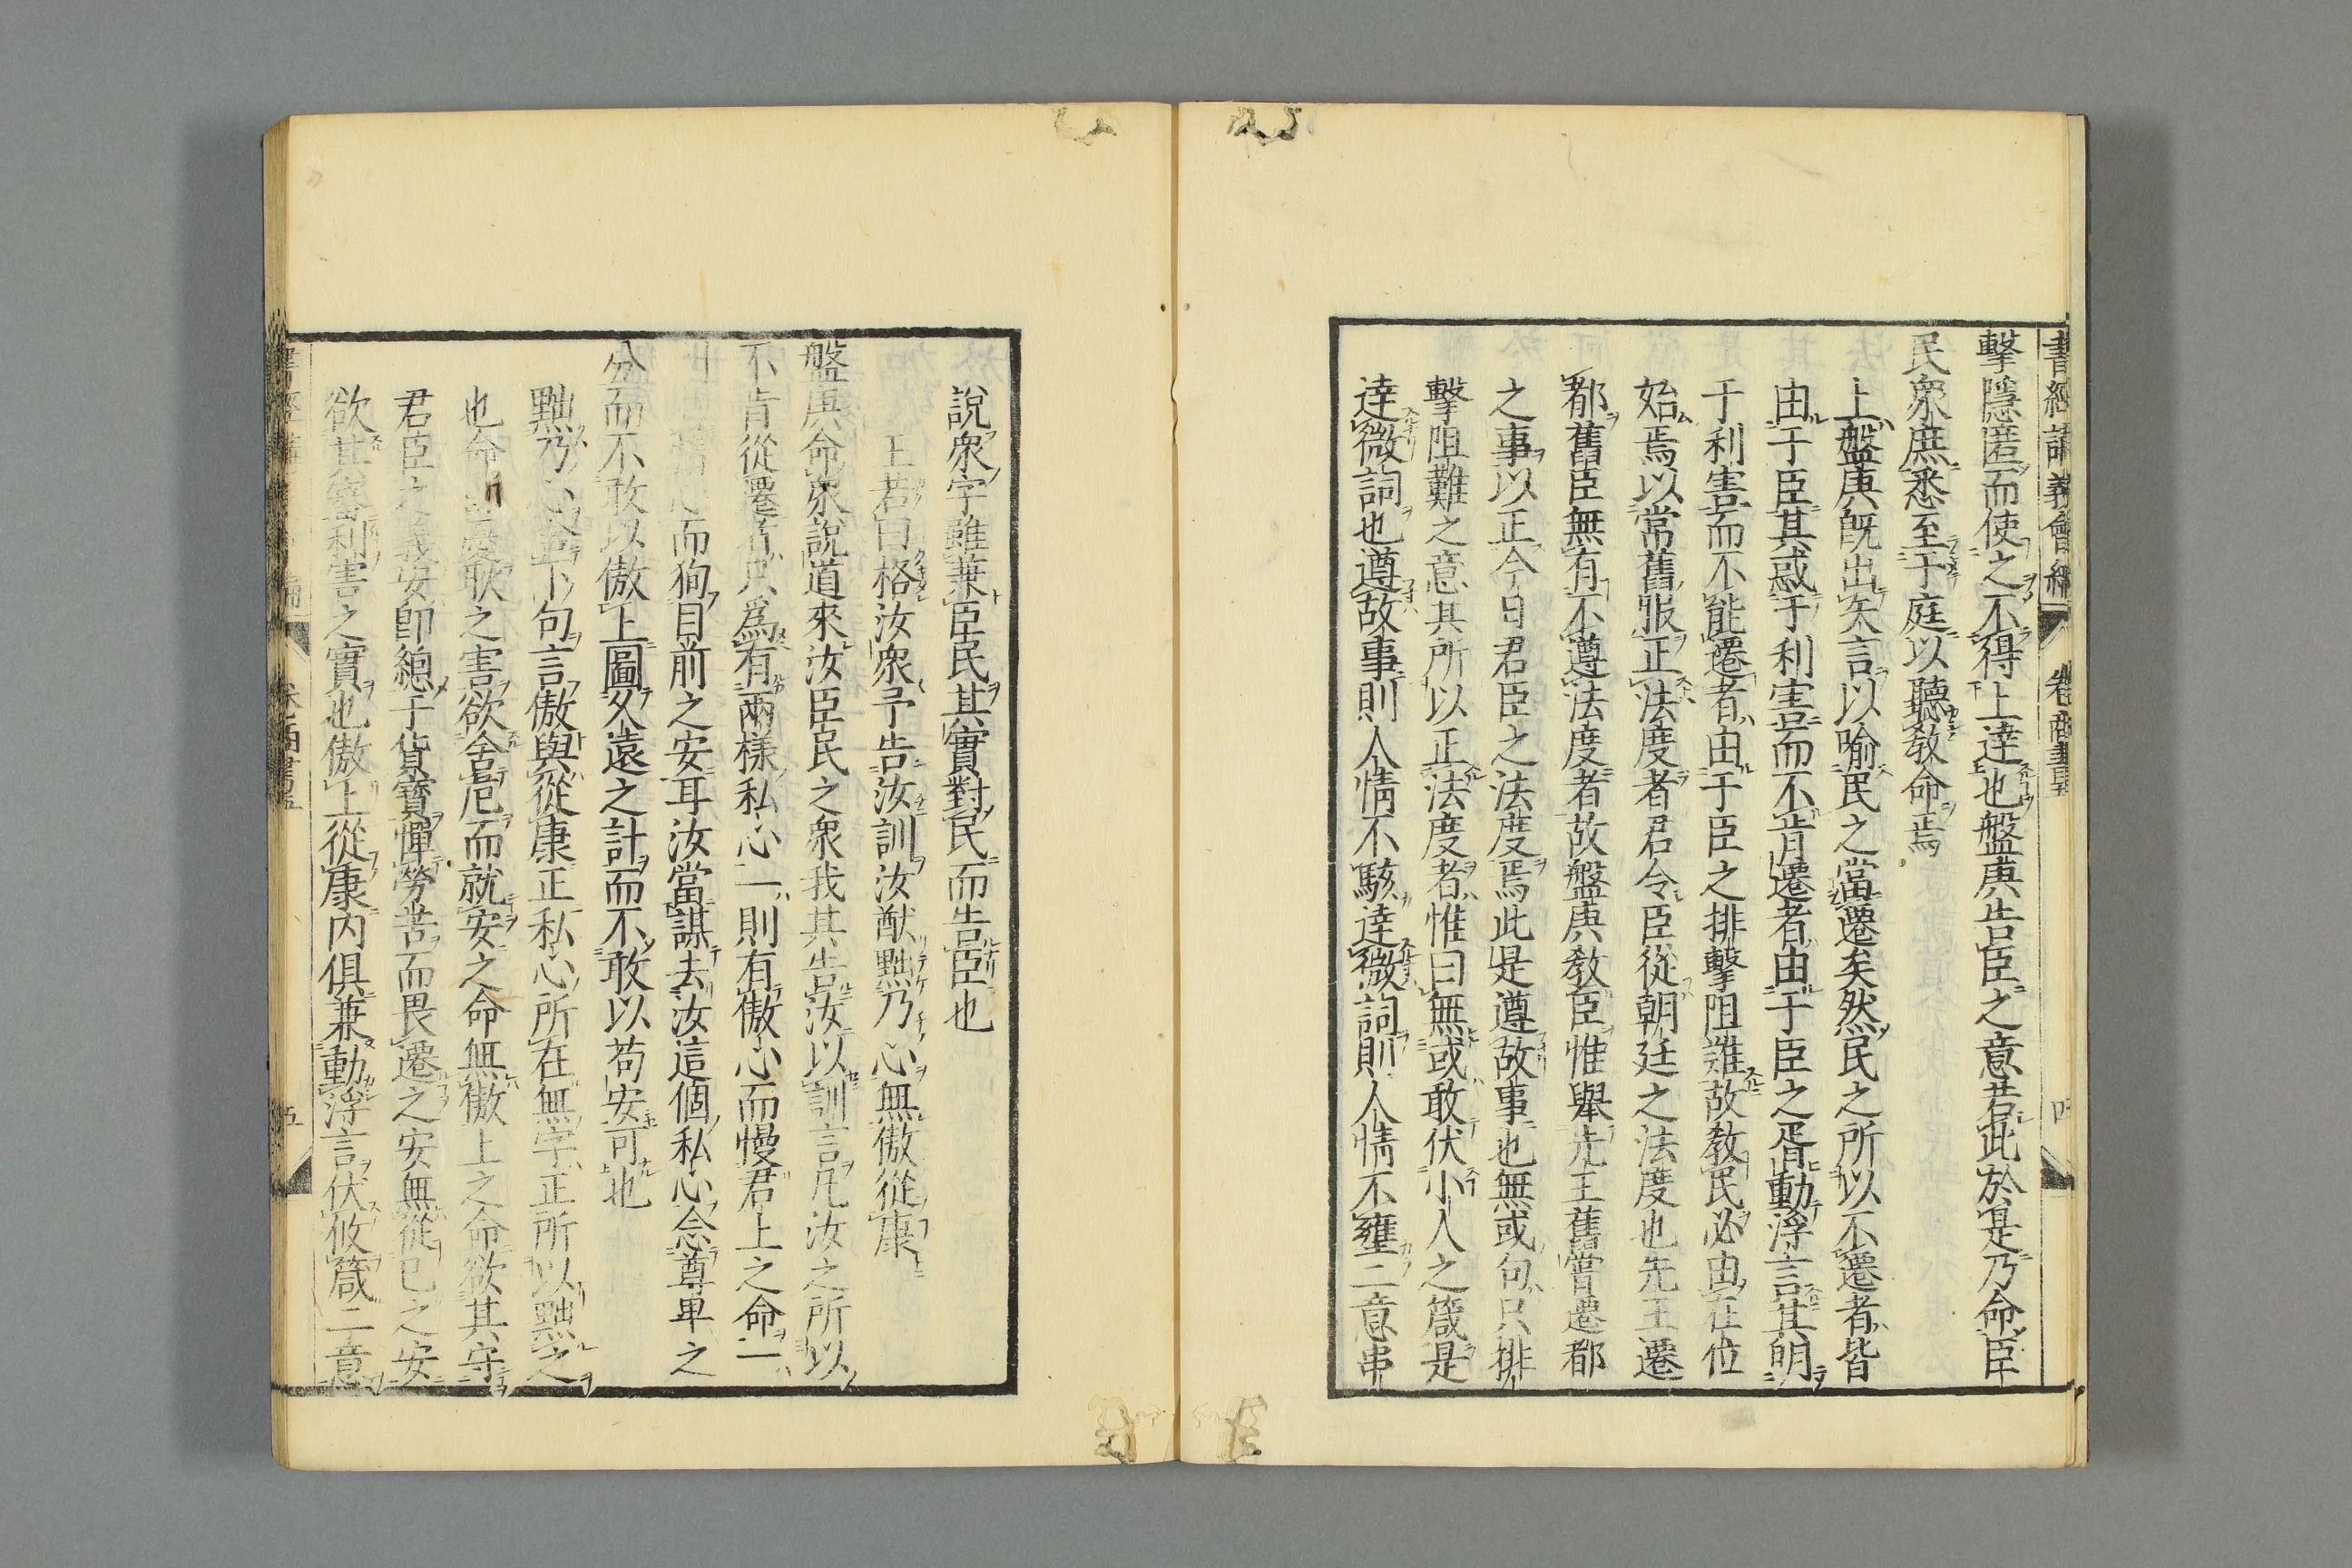 書經講義會編 卷 商書 四
擊隱匿而使之不得上達也盤庚告臣之意若此於是乃命臣
民衆庶悉至于庭以聽教命焉
上盤庚既出矢言以喻民之當遷矣然民之所以不遷者皆
由于臣其惑于利害而不肯遷者由于臣之胥動浮言其明
于利害而不能遷者由于臣之排擊阻難故教民必由在位
始焉以常舊服正法度者君令臣從朝廷之法度也先王遷
都舊臣無有不遵法度者故盤庚教臣惟舉先王舊嘗遷都
之事以正今日君臣之法度焉此是遵故事也無或句只排
擊阻難之意其所以正法度者惟曰無或敢伏小人之箴是
達微詞也遵故事則人情不駭達微詞則人情不壅二意串
說衆字雖兼臣民其實對民而告臣也
王若曰格汝衆予告汝訓汝猷黜乃心無傲從康
盤庚命衆說道來汝臣民之衆我其告汝以訓言凡汝之所以
不肯從遷者只爲有兩樣私心一則有傲心而慢君上之命一
則 心而狥目前之安耳汝當謀去汝這個私心念尊卑之
分而不敢以傲上圖久遠之計而不敢以苟安可也
黜乃心 下句言傲與從康正私心所在無字正所以黜之
也命 之害欲舍危而就安之命無傲上之命欲其守
君臣之義安卽總于貨寶憚勞苦而畏遷之安無從已之安
欲其審利害之實也傲上從康內俱兼動浮言伏攸箴二意
五